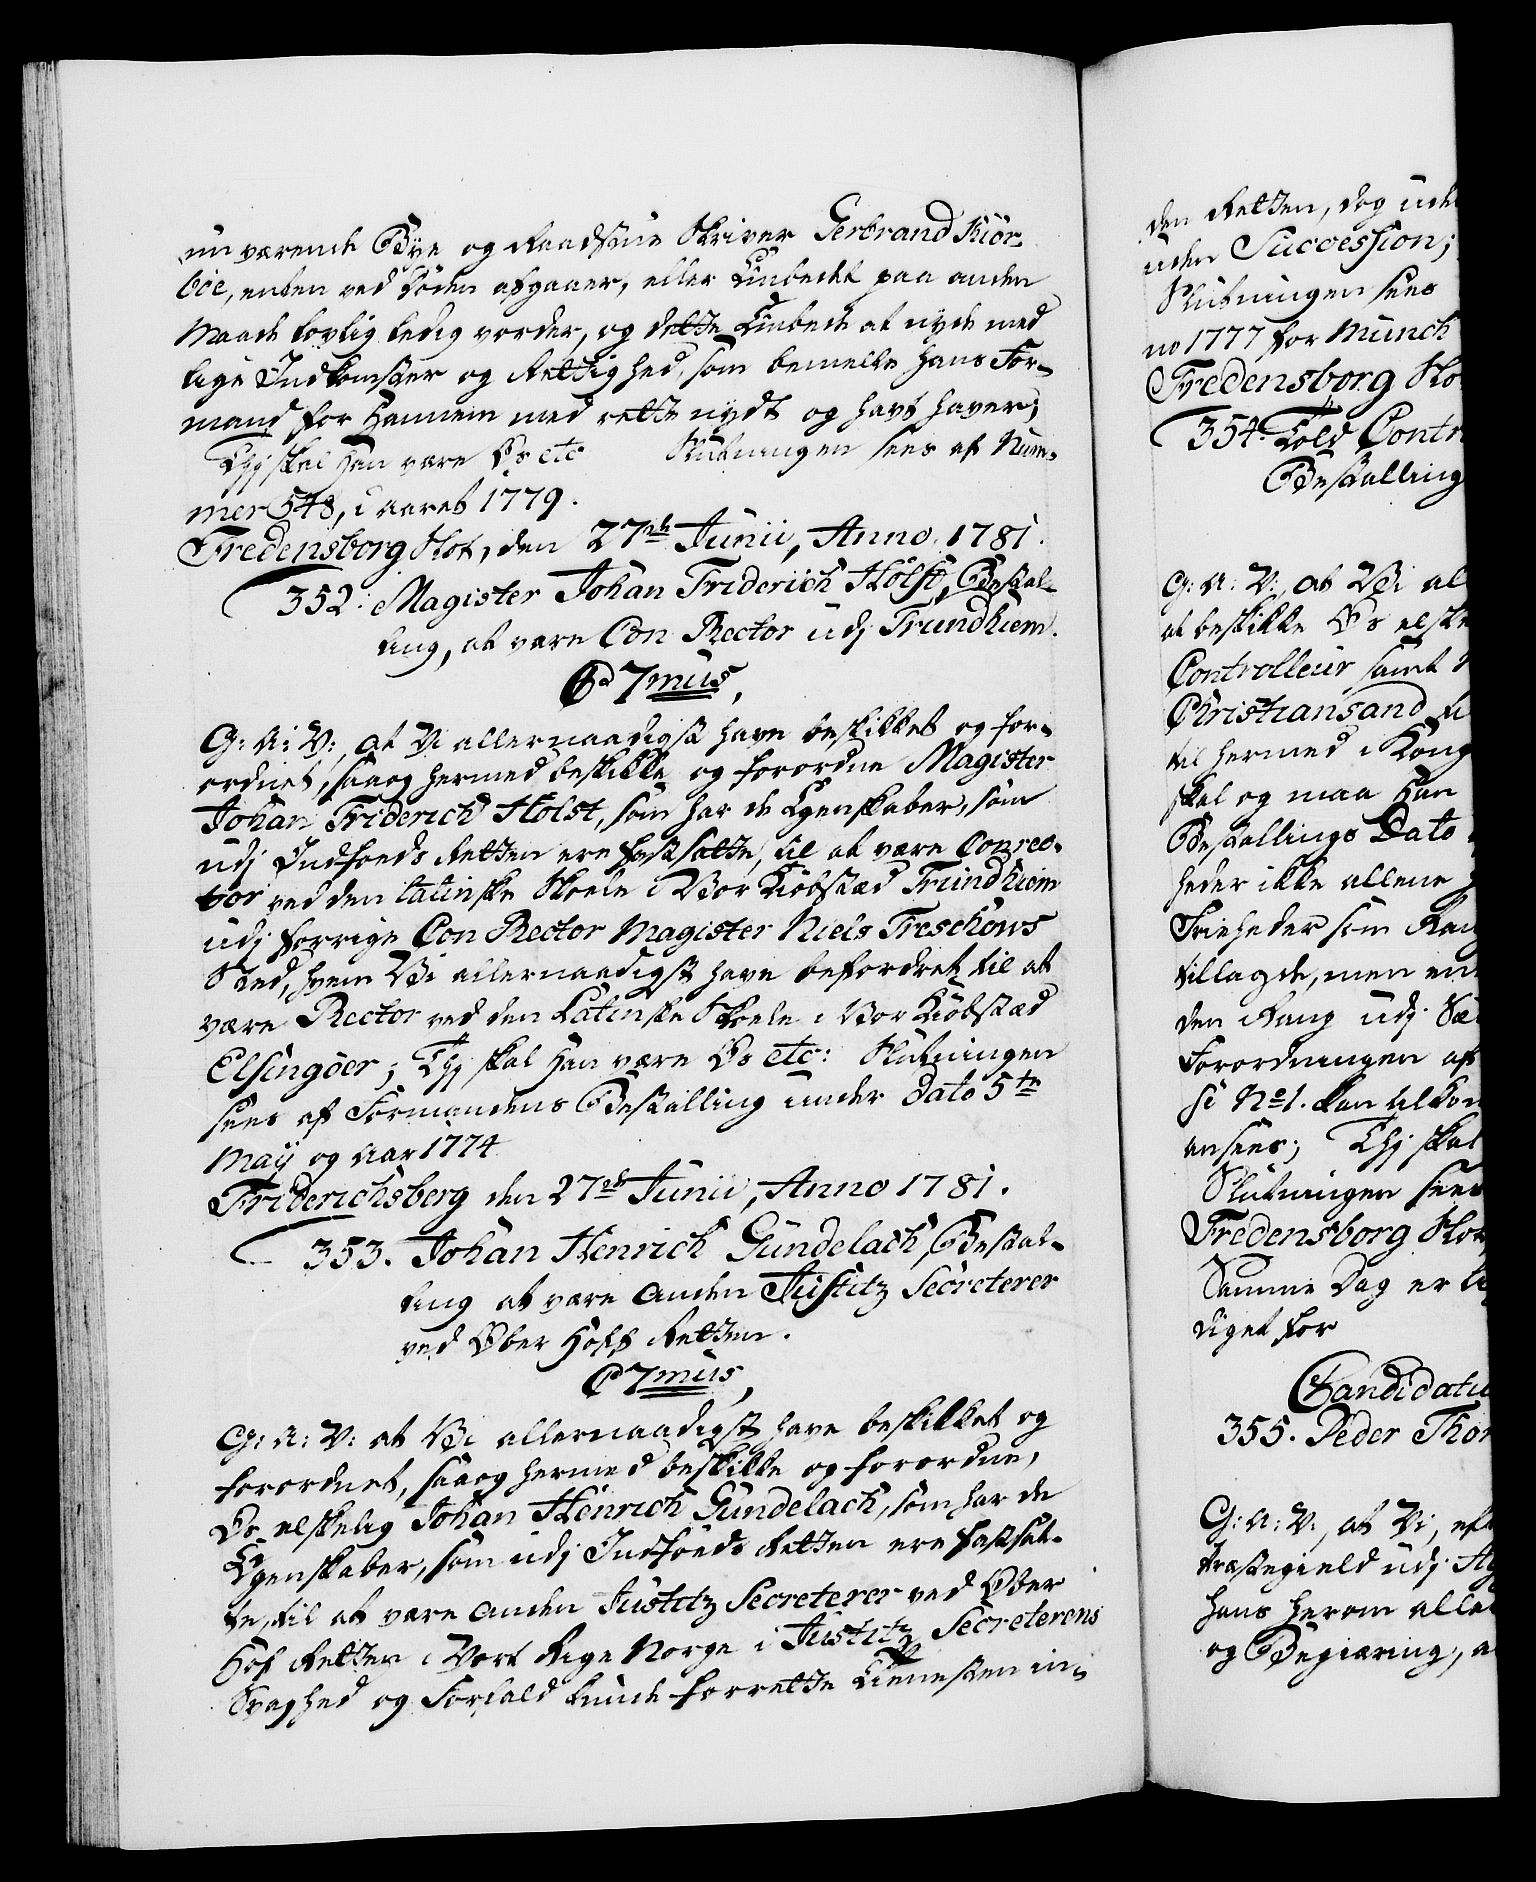 nu værende Bye og Raadstue Skriver Gerbrand Kiör-
böe, enten ved Döden afgaaer, eller Embedet paa anden
Maade lovlig ledig vorder, og dette Embede at nyde med
lige Indkomster og Rettighed, som bemelte Hans For-
mand for Hannem med rette nydt og havt haver;
Thj skal Han være Os etc Slutningen sees af Num-
mer 548, i Aaret 1779.
Fredensborg Slot, den 27de Junii, Anno 1781.
352. Magister Johan Friderich Holst, Bestal-
ling, at være Con Rector udj Trundhiem.
C 7mus,
G: A: V:, at Vi allernaadigst have beskikket og for-
ordnet, saaog hermed beskikke og forordne Magister
Johan Friderich Holst, som har de Egenskaber, som
udj Indföeds Retten ere fastsatte, til at være Conrec-
tor ved den latinske Skoele i Vor Kiöbstæd Trundhiem
udj forrige Con Rector Magister Niels Treschows
Sted, hvem Vi allernaadigst have befordret til at
være Rector ved den Latinske Skoele i Vor Kiöbstæd
Elsingöer; Thj skal Han være Os etc: Slutningen
sees af Formandens Bestalling under Dato 5te
Maij og Aar 1774
Friderichsberg den 27de Junii, Anno 1781.
353. Johan Henrich Gundelach, Bestal-
ling at være Anden Justitz Secreterer
ved Ober Hoff Retten.
C 7mus,
G: A: V: at Vi allernaadigst have beskikket og
forordnet, saaog hermed beskikke og forordne,
Os elskelig Johan Henrich Gundelach, som har de
Egenskaber, som udj Indföeds Retten ere fastsat-
te, til at være Anden Justitz Secreterer ved Ober
Hof Retten i Vort Rige Norge i Justitz Secreterens
Svaghed og Forfald kunde forrette Tienesten in-
den Retten, dog
uden Succession;
Slutningen sees
no 1777 for Munch
Fredensborg
354. Told
Bestalling
G: A: V:, at Vi
at beskikke Os
Controlleur samt
Christiansand
til hermed i
skal og maa Han
Bestallings Dato
heder ikke allene
Friheder som
tillagde, men
den Rang udj
Forordningen af
se No 1. kan
ansees; Thj skal
Slutningen sees
Fredensborg
Samme Dag er
diget for
355. Peder
G: A: V:, at Vi,
Præstegield udj
hans herom
og Begiæring,